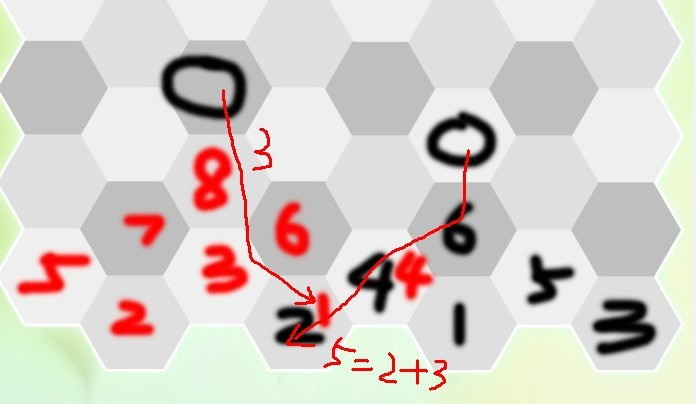 0
3
0
8
7 6 6
5 3 4 4 5
2 2 1 1 3
5=2+3